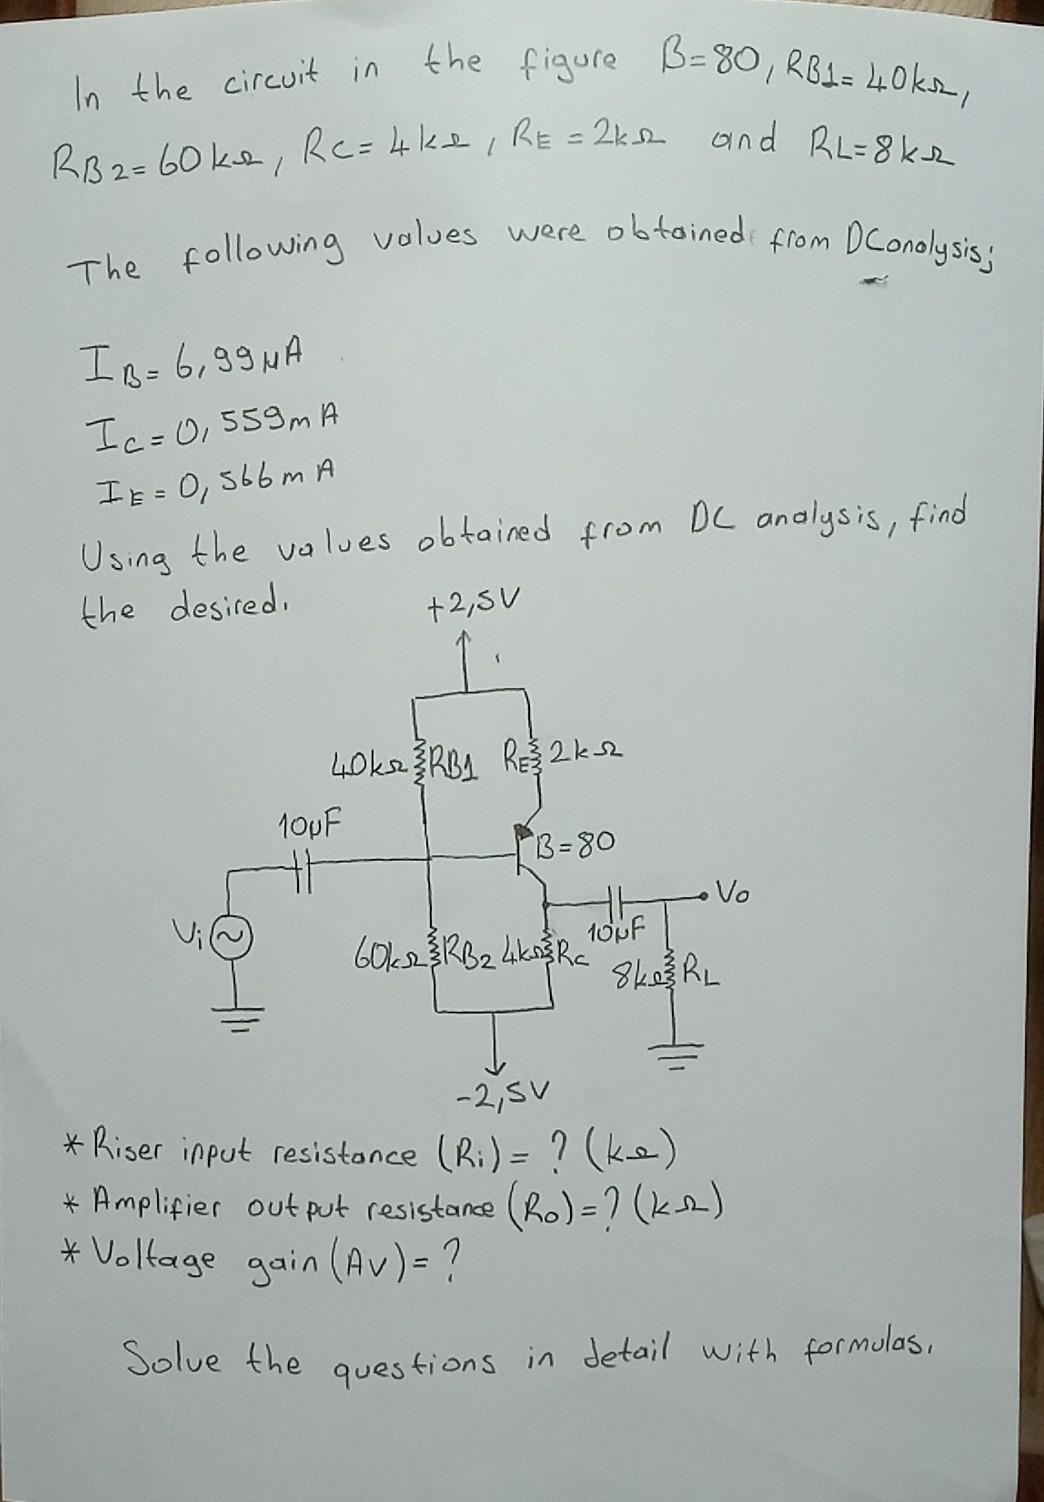 In the circuit in the figure β=80, RB1=40kΩ,
RB2=60kΩ, RC=4kΩ, RE=2kΩ and RL=8kΩ
The following values were obtained from DC analysis;
IB=6,99µA
IC=0,559mA
IE=0,566mA
Using the values obtained from DC analysis, find
the desired.
+2,5V
40kΩ RB1 RE 2kΩ
10µF
β=80
Vo
Vi
10µF
60kΩ RB2 4kΩ RC
8kΩ RL
-2,5V
* Riser input resistance (Ri) = ? (kΩ)
* Amplifier output resistance (Ro)=? (kΩ)
* Voltage gain (AV) = ?
Solve the questions in detail with formulas.